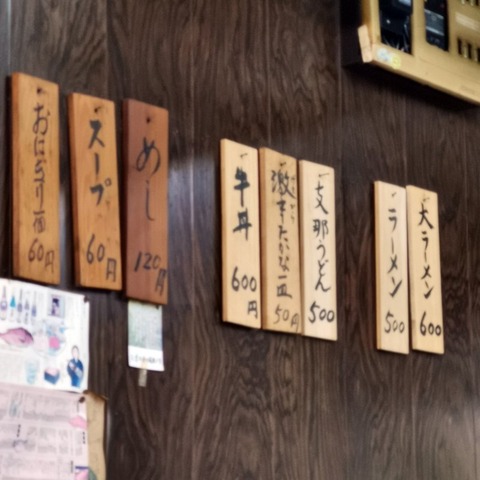 おにぎり一個
60円
スープ
60円
めし
120円
牛丼
600円
激辛たかな一皿
50円
支那うどん
500
ラーメン
500
大ラーメン
600